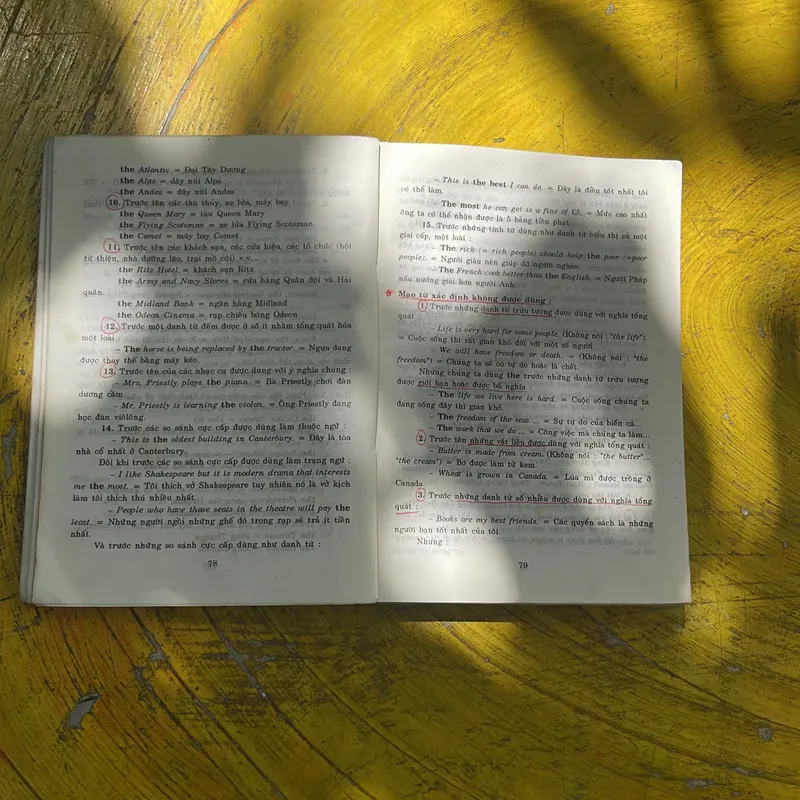 the Atlantic = Đại Tây Dương
the Alps = dãy núi Alps
the Andes = dãy núi Andes
10. Trước tên các tàu thủy, xe lửa, máy bay.
the Queen Mary = tàu Queen Mary
the Flying Scotsman = xe lửa Flying Scotsman
the Comet = máy bay Comet
11. Trước tên các khách sạn, các cửa hiệu, các tổ chức (hội
từ thiện, nhà dưỡng lão, trại mồ côi) v.v...
the Ritz Hotel = khách sạn Ritz
the Army and Navy Stores = cửa hàng Quân đội và Hải
quân.
the Midland Bank = ngân hàng Midland
the Odeon Cinema = rạp chiếu bóng Odeon
12. Trước một danh từ đếm được ở số ít nhằm tổng quát hóa
một loại :
– The horse is being replaced by the tractor. = Ngựa đang
được thay thế bằng máy kéo.
13. Trước tên của các nhạc cụ được dùng với ý nghĩa chung :
– Mrs. Priestly plays the piano. = Bà Priestly chơi đàn
dương cầm.
– Mr. Priestly is learning the violon. = Ông Priestly đang
học đàn viôlông.
14. Trước các so sánh cực cấp được dùng làm thuộc ngữ :
– This is the oldest building in Canterbury. = Đây là tòa
nhà cổ nhất ở Canterbury.
Đôi khi trước các so sánh cực cấp được dùng làm trạng ngữ :
– I like Shakespeare but it is modern drama that interests
me the most. = Tôi thích vở Shakespeare tuy nhiên nó là vở kịch
làm tôi thích thú nhiều nhất.
– People who have those seats in the theatre will pay the
least. = Những người ngồi những ghế đó trong rạp sẽ trả ít tiền
nhất.
Và trước những so sánh cực cấp dùng như danh từ :
78
– This is the best I can do. = Đây là điều tốt nhất tôi
có thể làm.
– The most he can get is a fine of £5. = Mức cao nhất
ông ta có thể nhận được là 5 bảng tiền phạt.
15. Trước những tính từ dùng như danh từ biểu thị cả một
giai cấp, một loài :
– The rich (= rich people) should help the poor (=poor
people). = Người giàu nên giúp đỡ người nghèo.
– The French cook better than the English. = Người Pháp
nấu nướng giỏi hơn người Anh.
Mạo từ xác định không được dùng :
1. Trước những danh từ trừu tượng được dùng với nghĩa tổng
quát
– Life is very hard for some people. (Không nói : "the life").
= Cuộc sống thì rất gian khổ đối với một số người
– We will have freedom or death. = (Không nói : "the
freedom") = Chúng ta sẽ có tự do hoặc là chết.
Nhưng chúng ta dùng the trước những danh từ trừu tượng
được giới hạn hoặc được bổ nghĩa :
– The life we live here is hard. = Cuộc sống chúng ta
đang sống đây thì gian khổ.
– The freedom of the seas ... = Sự tự do của biển cả...
– The work that we do ... = Công việc mà chúng ta làm...
2. Trước tên những vật liệu được dùng với nghĩa tổng quát :
– Butter is made from cream. (Không nói : "the butter"...
"the cream") = Bơ được làm từ kem.
– Wheat is grown in Canada. = Lúa mì được trồng ở
Canada.
3. Trước những danh từ số nhiều được dùng với nghĩa tổng
quát :
– Books are my best friends. = Các quyển sách là những
người bạn tốt nhất của tôi.
Nhưng :
79